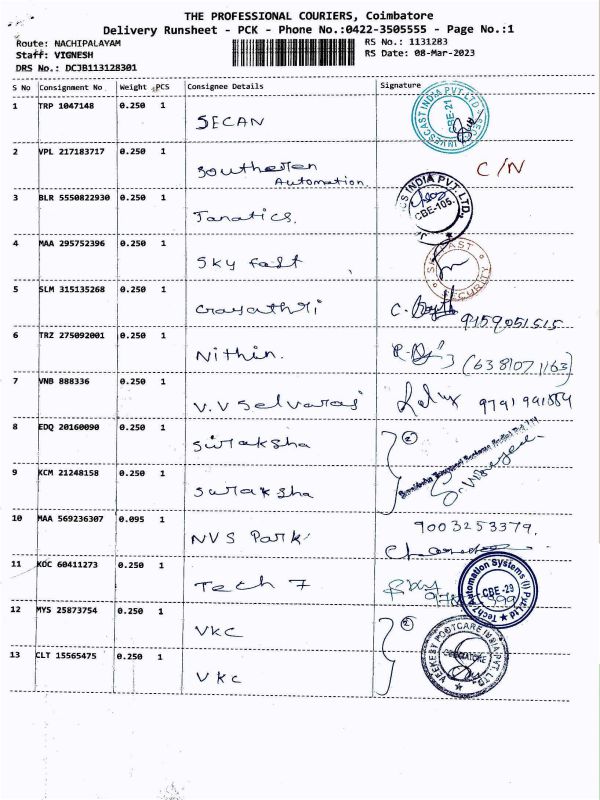 THE PROFESSIONAL COURIERS, Coimbatore
Delivery Runsheet - PCK - Phone No.:0422-3505555 - Page No.:1
Route: NACHIPALAYAM RS No.: 1131283
Staff: VIGNESH RS Date: 08-Mar-2023
DRS No.: DCJB113128301
S No Consignment No Weight PCS Consignee Details Signature
1 TRP 1047148 0.250 1 SECAN
INVESCAST INDIA PVT.LTD CBE-21
2 VPL 217183717 0.250 1 Southeren Automation. C/N
3 BLR 5550822930 0.250 1 Janatics.
INDIA PVT. LTD. CBE-105.
4 MAA 295752396 0.250 1 Sky fast
SECURITY
5 SLM 315135268 0.250 1 Gayathri 9159051515
6 TRZ 275092001 0.250 1 Nithin. (6381071163)
7 VNB 888336 0.250 1 V.V Selvaraj
8 EDQ 20160090 0.250 1 Suraksha 2
9 KCM 21248158 0.250 1 Suraksha
10 MAA 569236307 0.095 1 NVS Park 9003253379.
11 KOC 60411273 0.250 1 Tech 7
Tech7 Automation Systems (I) Pvt Ltd CBE-29
12 MYS 25873754 0.250 1 VKC 2
13 CLT 15565475 0.250 1 VKC
VEEKESY FOOTCARE INDIA PVT. LTD. COIMBATORE